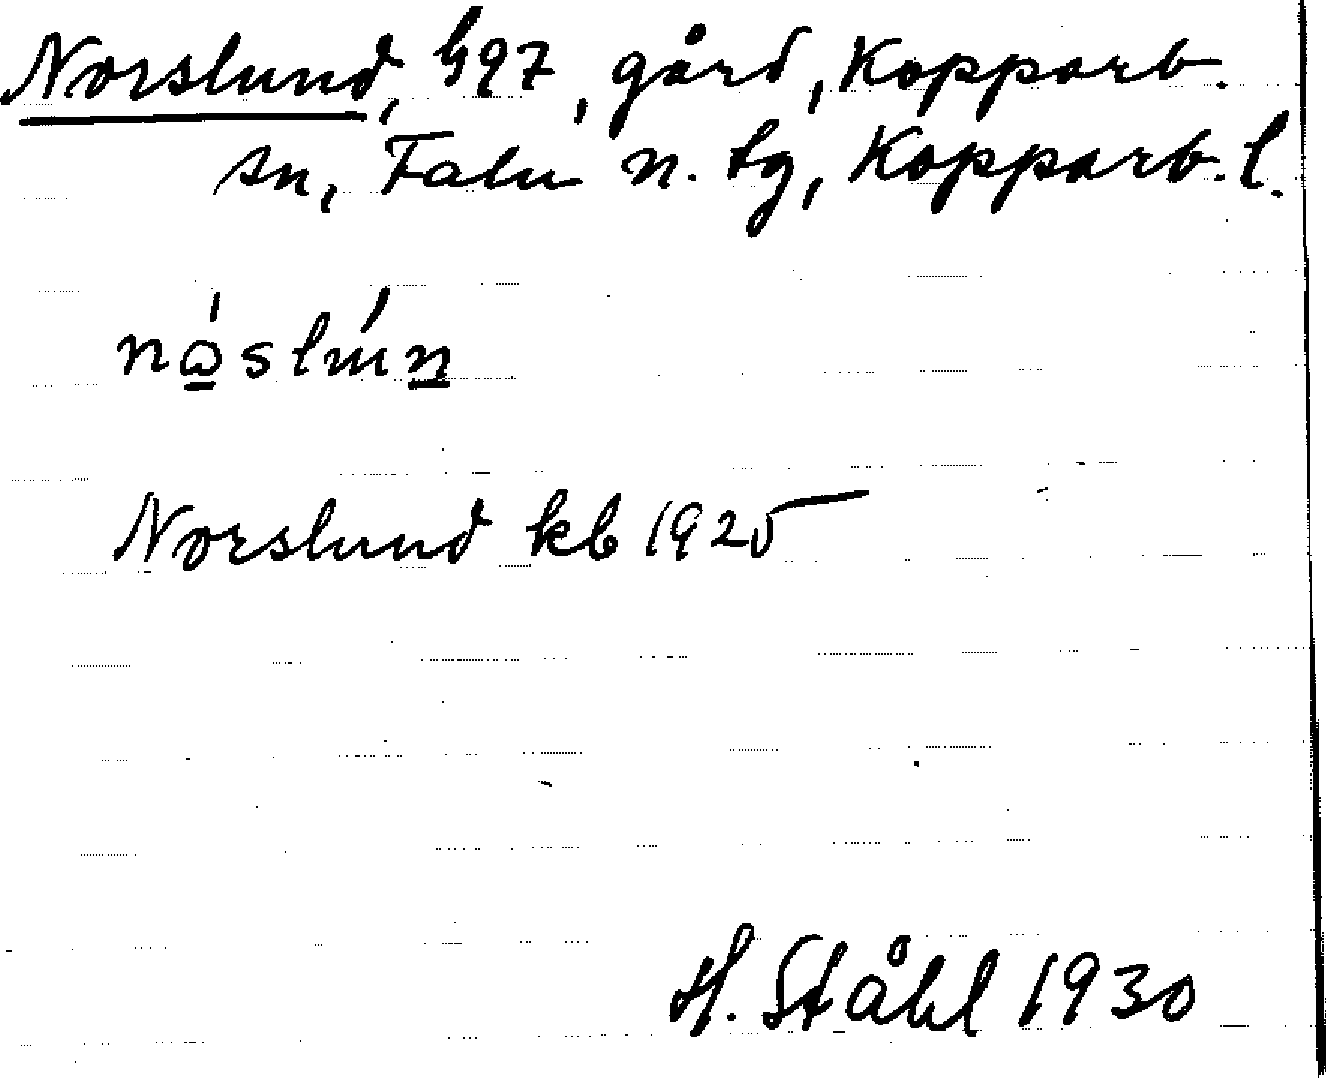 Norslund, h97, gård, Kopparb.
sn, Falu n. tg, Kopparb. l.
Norslund kb 1925
H. Ståhl 1930